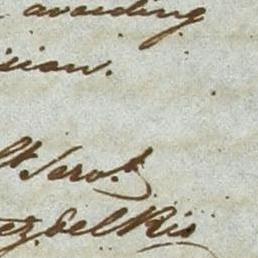 avoiding
ision.
lt Servt
ez, del Rio